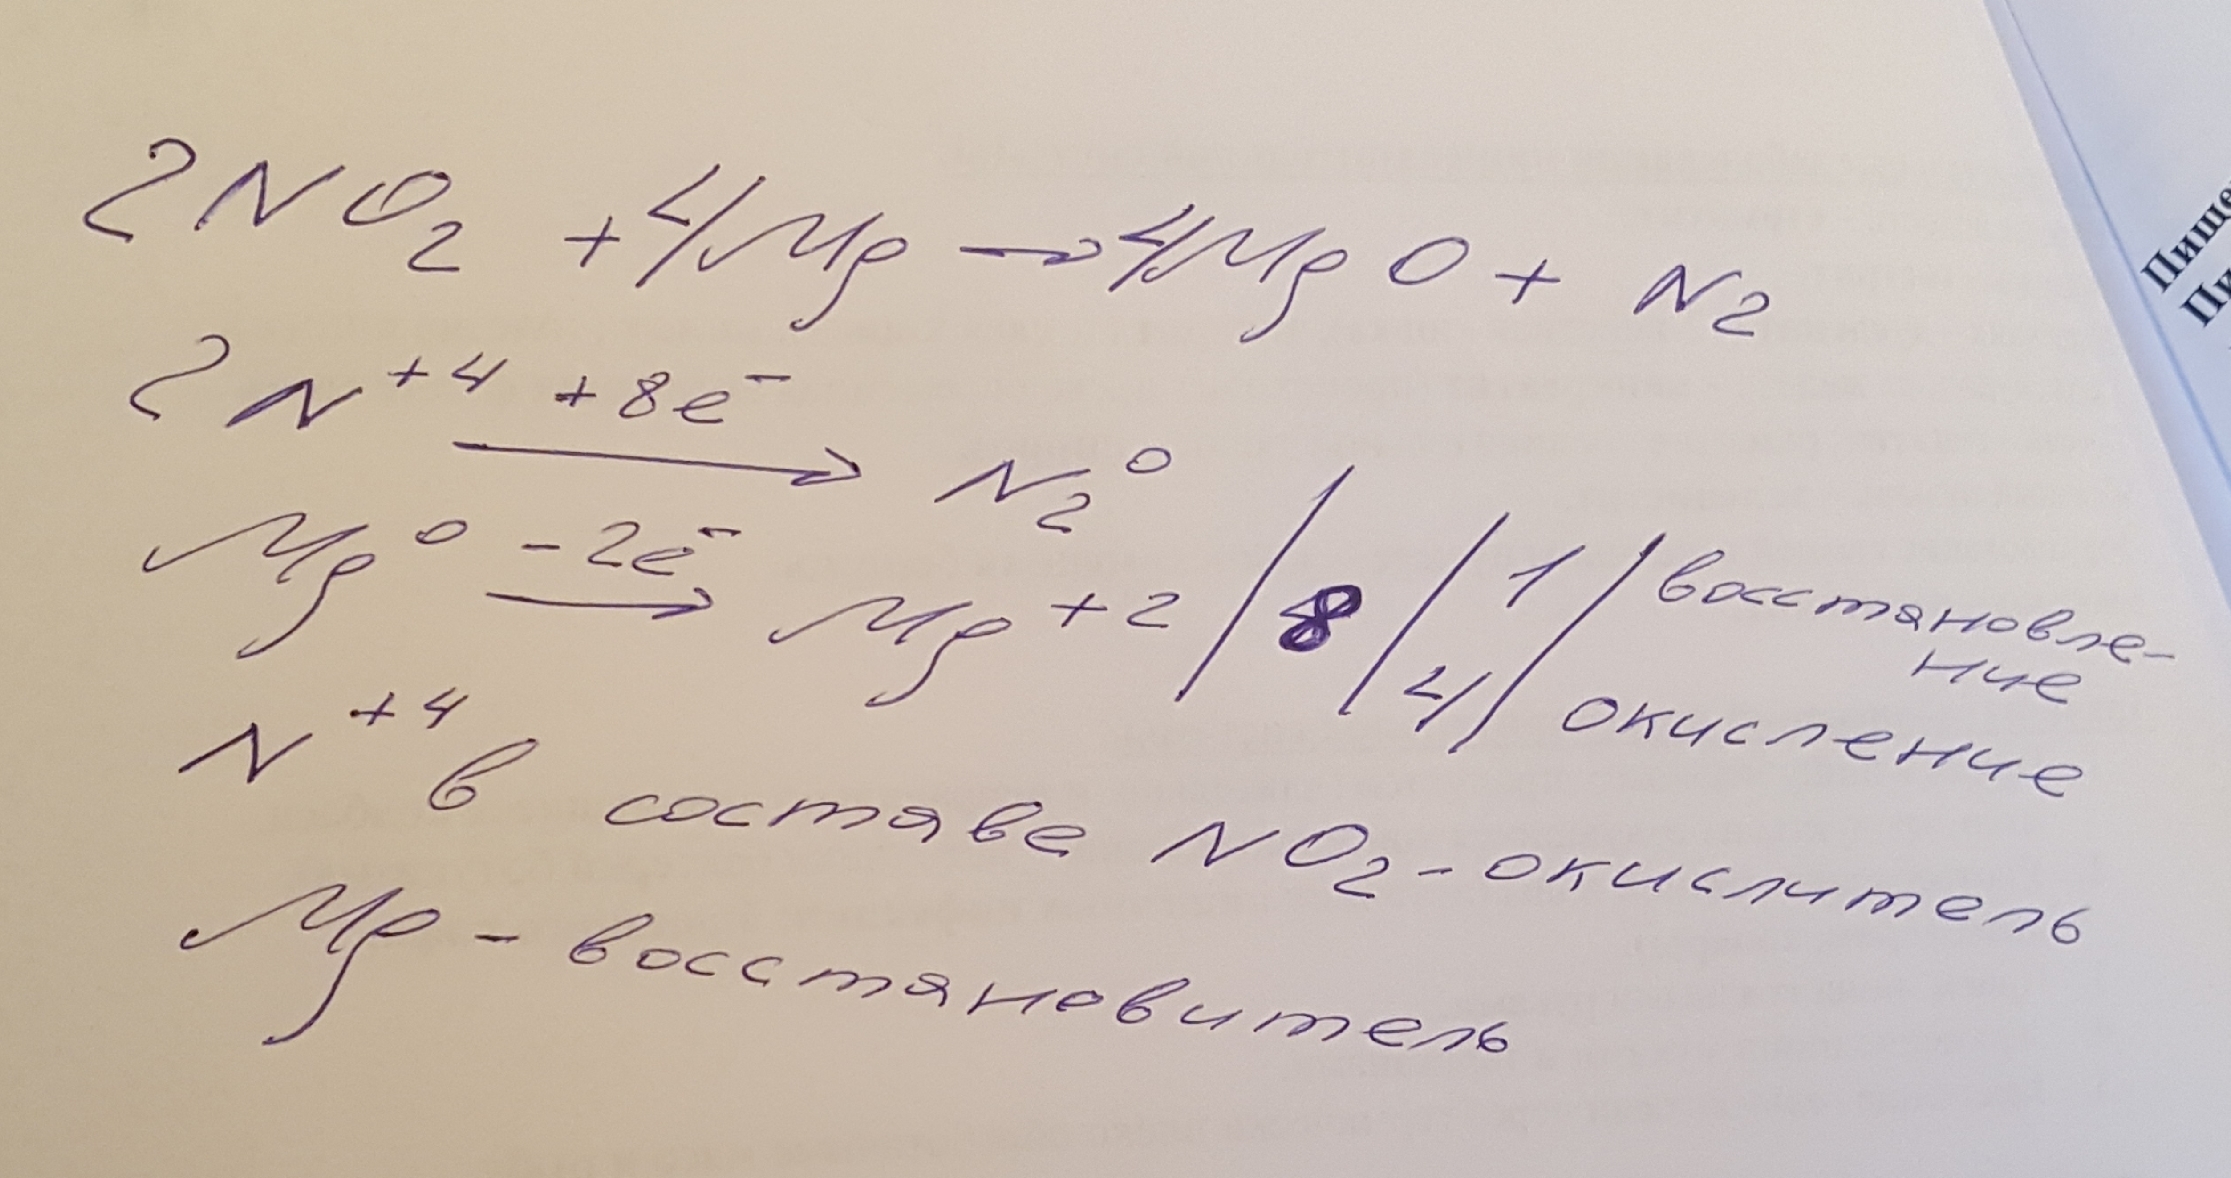 2NO₂ + 4Mg → 4MgO + N₂
2N⁺⁴ +8e⁻ → N₂⁰
Mg⁰ -2e⁻ → Mg⁺² / 8 / 1 / восстановле-
ние
4 / окисление
N⁺⁴ в составе NO₂ - окислитель
Mg - восстановитель
Пише